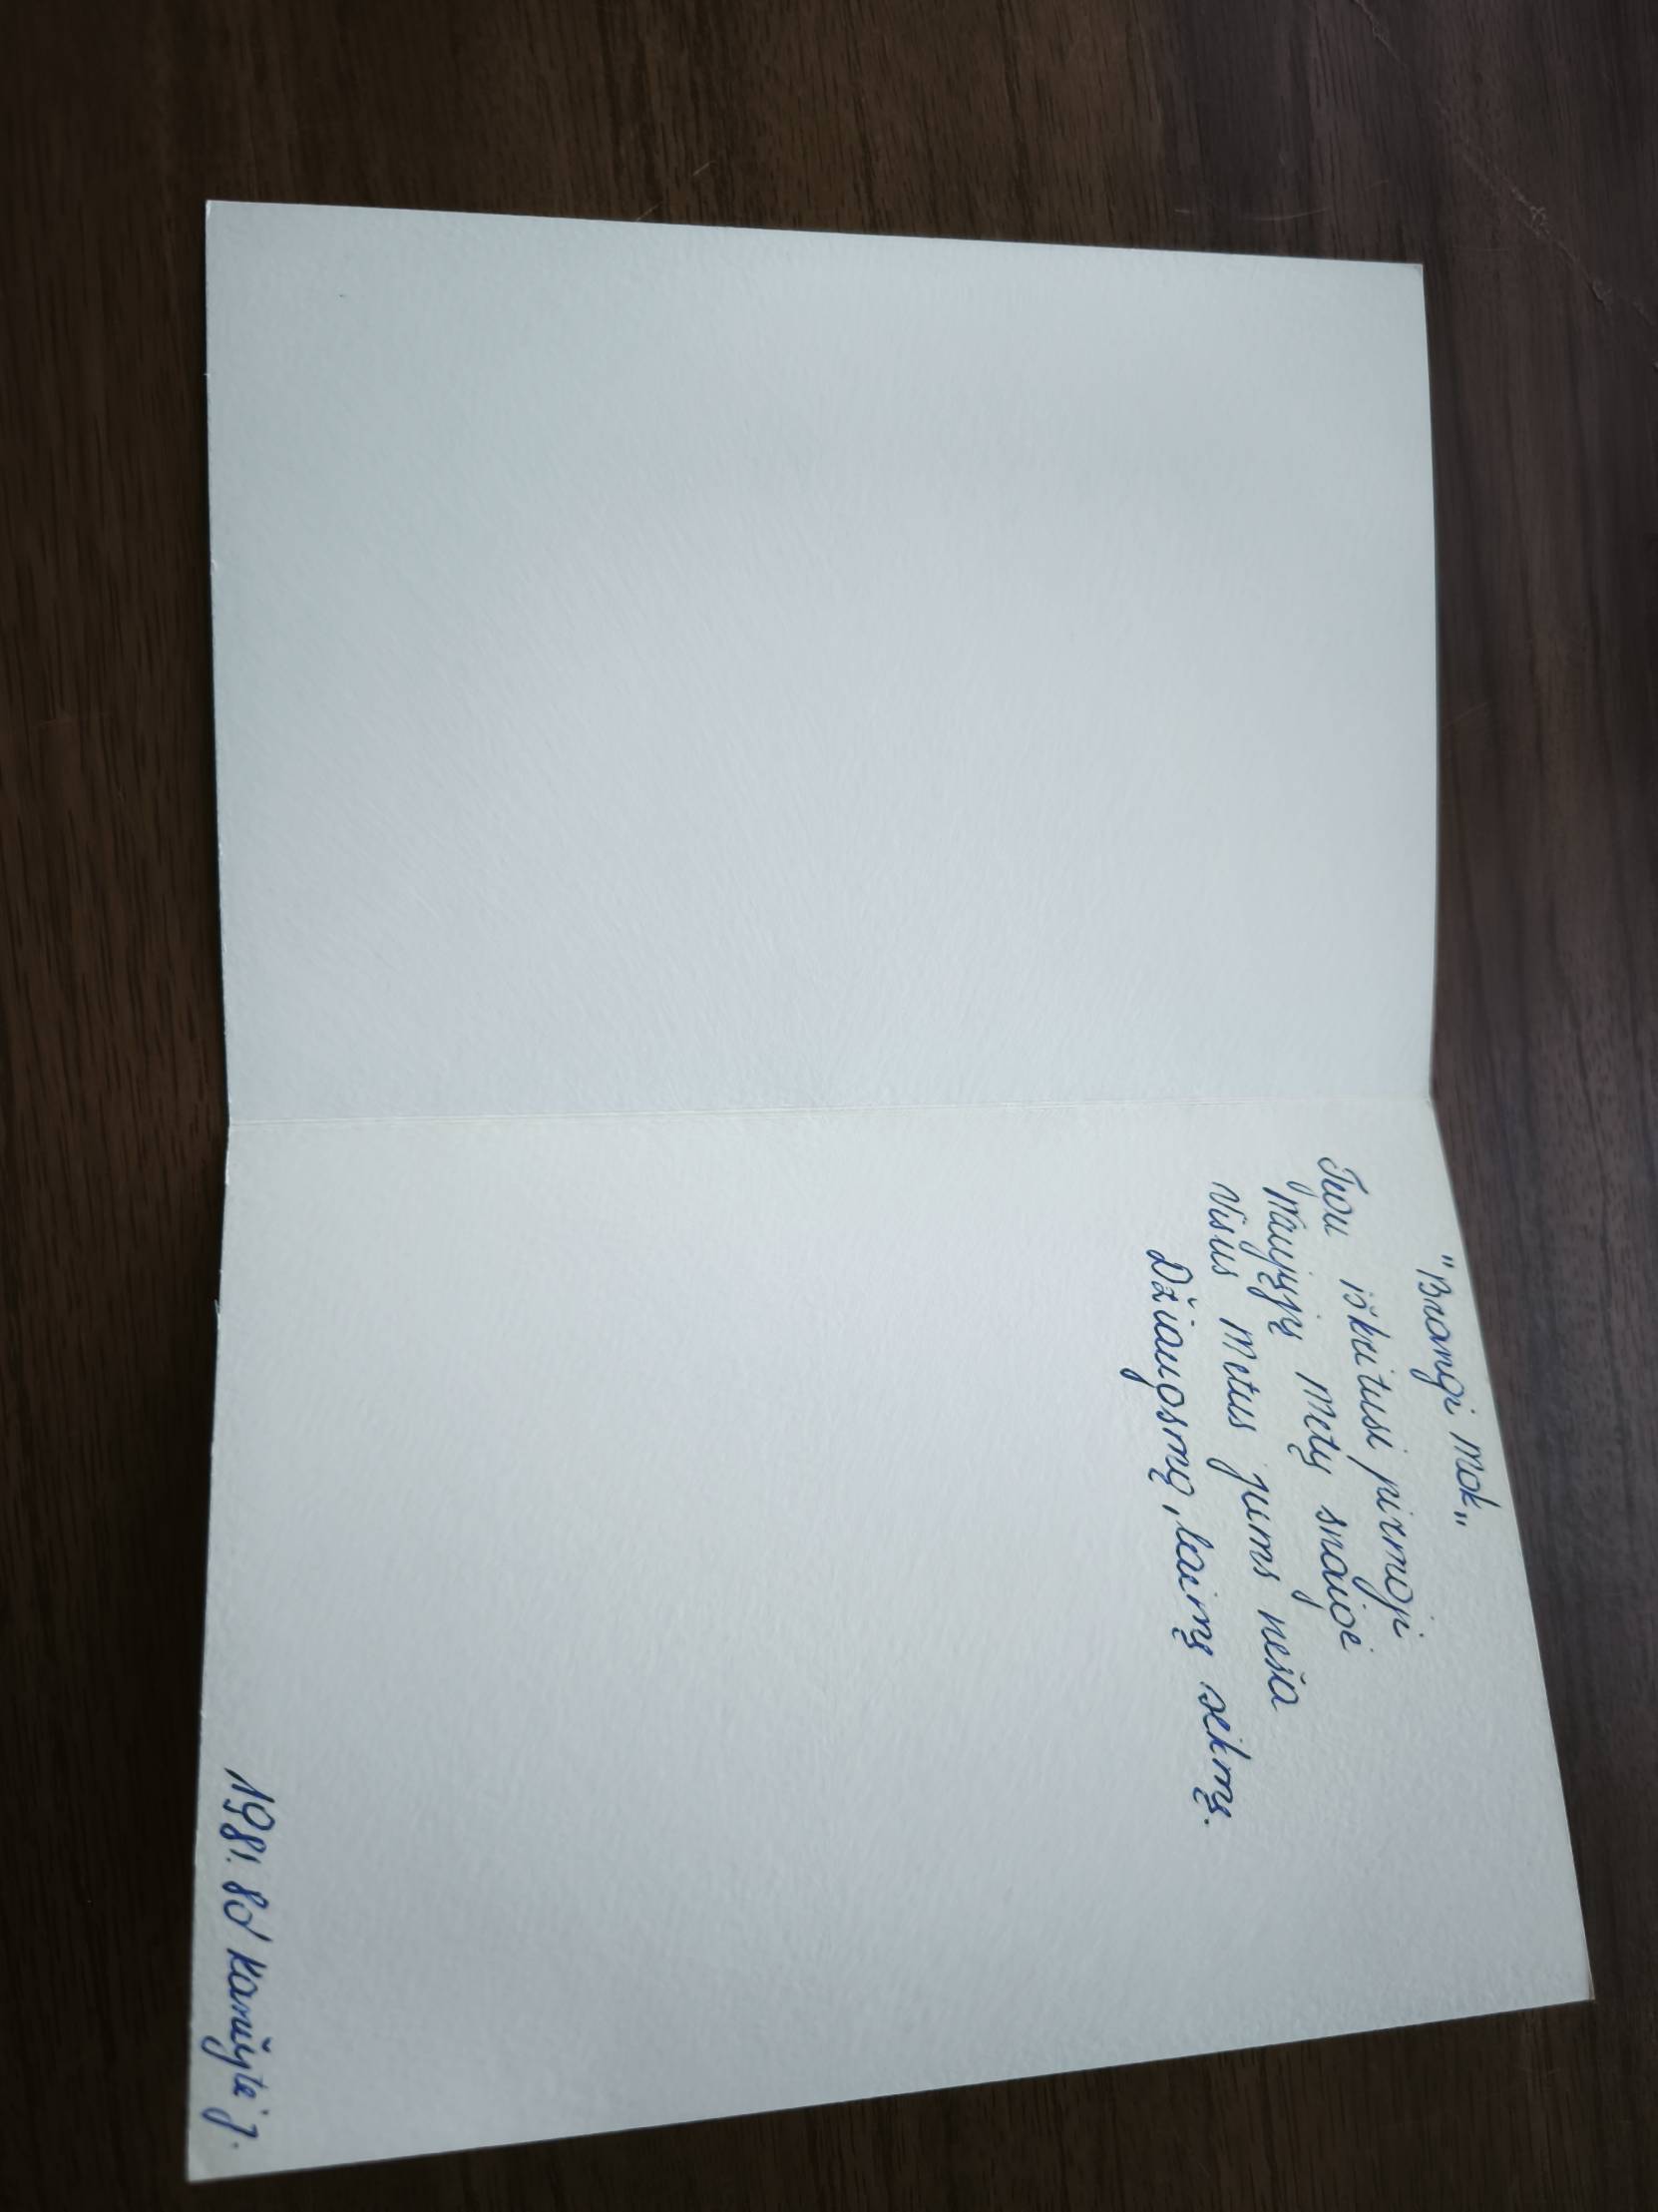 "Brangi mok„
Tuoj iškritusi pirmoji
Naujųjų metų snaigė
Visus metus jums neša
Džiaugsmą, laimę sėkmę.
1981. 8d Kanišytė J.